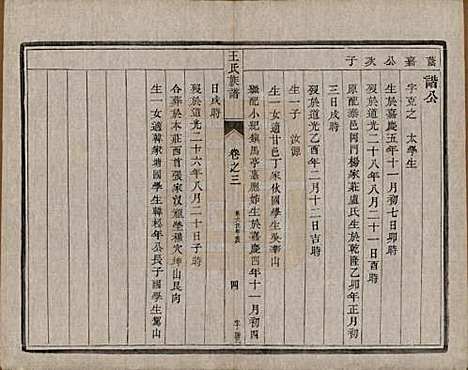 蓋嘉公次子
諧公
字克之 太學生
生於嘉慶五年十一月初七日卯時
歿於道光二十八年八月二十一日酉時
原配泰邑河河楊家莊盧氏生於乾隆乙卯年正月初
三日戌時
歿於道光乙酉年二月十二日吉時
生一子 汝源
生一女適甘邑丁家伙國學生吳華山
繼配小紀鎮馬亭嘉應姊生於嘉慶四年十一月初四
王氏族譜
卷之三
四
日戌時
歿於道光二十六年八月二十日子時
合葬於木莊西首張家汊祖塋穆穴坤山艮向
生一女適韓家塘國學生韓松年公長子國學生鷲山